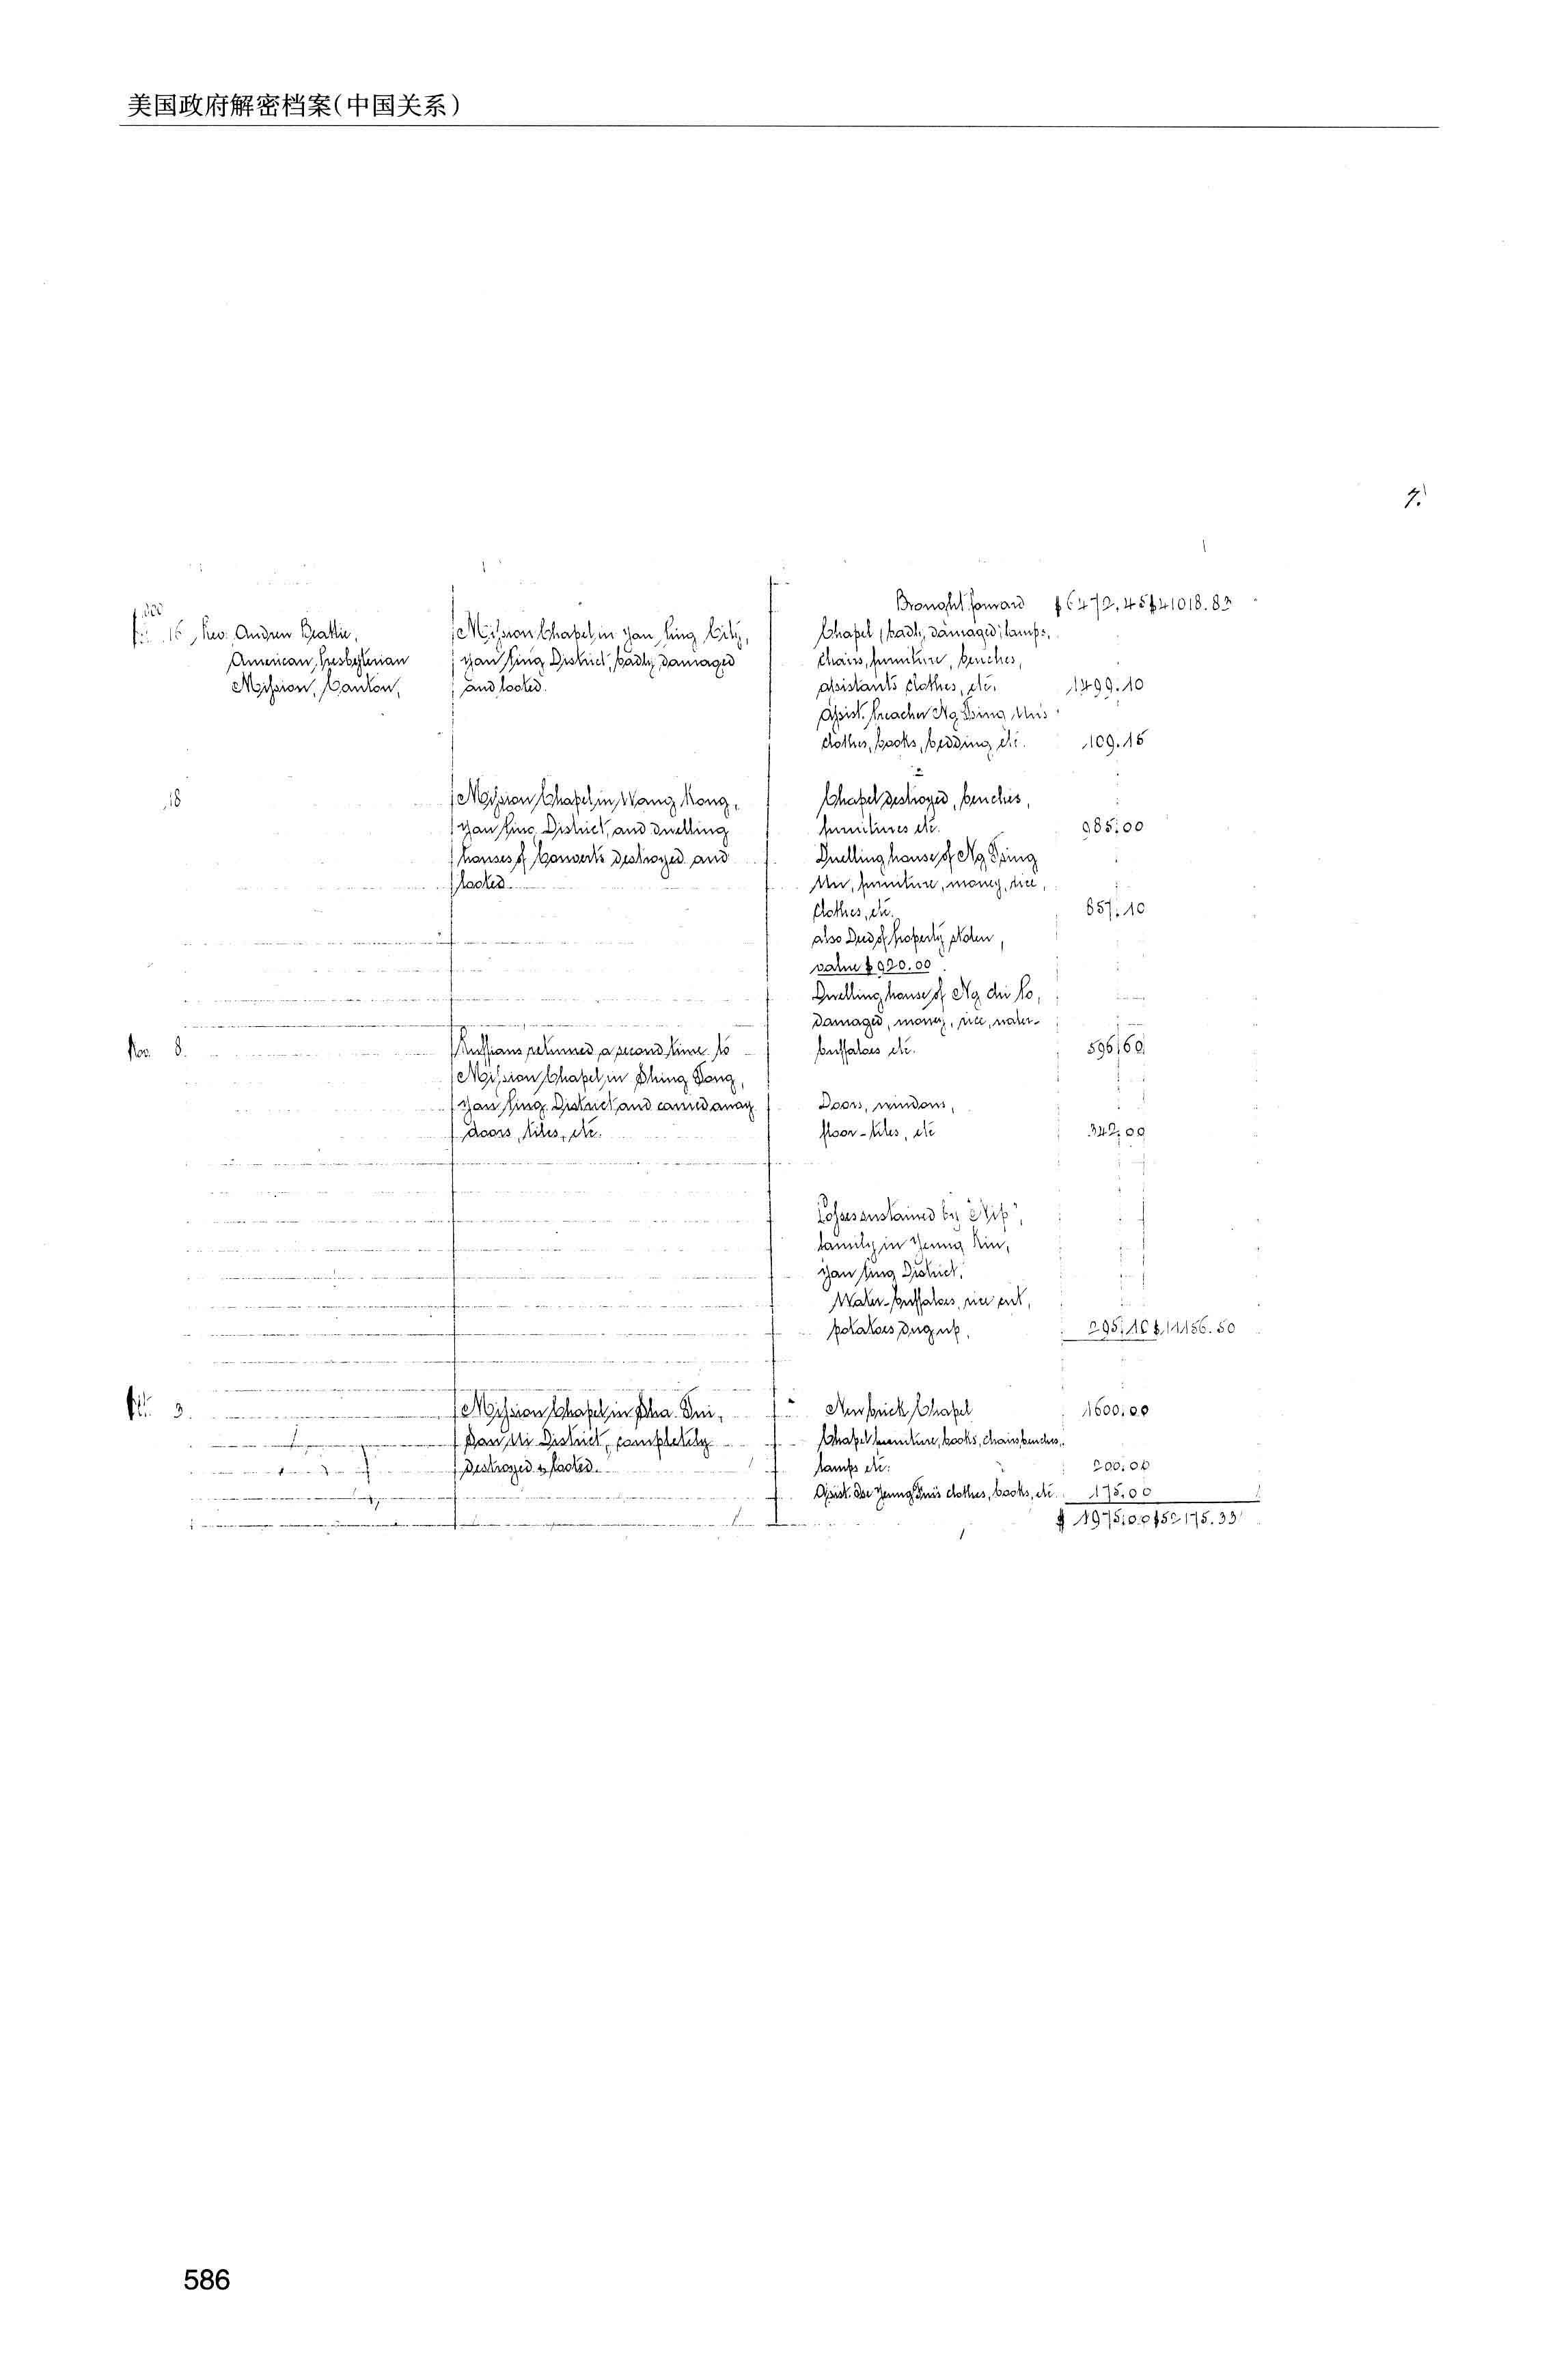 美国政府解密档案(中国关系)
7.
Brought forward $6472.45 $41018.83
16, Rev. Andrew Beattie,
American Presbyterian
Mission, Canton,
Mission Chapel in Yan Ping City,
Yan Ping District, badly damaged
and looted.
Chapel badly damaged, lamps,
chairs, furniture, benches,
assistants clothes, etc. 1499.10
Assist. Preacher Ng Tsing Un's
clothes, books, bedding, etc. 109.15
18
Mission Chapel in Wang Kong,
Yan Ping District, and dwelling
houses of Converts destroyed and
looted.
Chapel destroyed, benches,
furnitures etc. 985.00
Dwelling house of Ng Tsing
Un, furniture, money, rice,
clothes, etc. 857.10
also Deed of Property stolen,
value $920.00
Dwelling house of Ng Chi Po,
damaged, money, rice, water-
buffaloes etc. 596.60
Nov. 8.
Ruffians returned a second time to
Mission Chapel in Shing Tong,
Yan Ping District and carried away
doors, tiles, etc.
Doors, windows,
floor-tiles, etc 342.00
Losses sustained by "Nip"
family in Yeung Kin,
Yan Ping District.
Water-buffaloes, rice cut,
potatoes dug up. 295.10 $11156.50
3.
Mission Chapel in Sha Tui,
San Ui District, completely
destroyed & looted.
New brick Chapel 1600.00
Chapel furniture, books, chairs, benches,
lamps etc. 200.00
Assist. Tse Yeung Tui's clothes, books, etc. 175.00
$1975.00 $52175.33
586